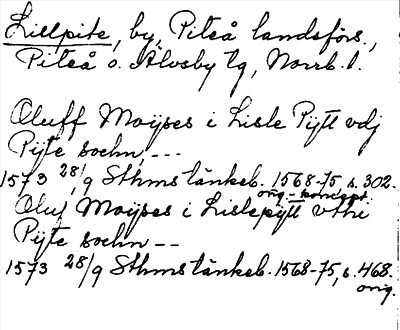 Lillpite, by, Piteå landsförs.,
Piteå o. Älvsby tg, Norrb. l.
Oluff Moÿses i Lisle Pÿtt vdj
Pÿte sochn, ---
1573 28/9 Sthms tänkeb. 1568-75, s. 302.
orig.-koncept.
Oluf Moÿses i Lislepÿtt vthi
Pÿte sochn --
1573 28/9 Sthms tänkeb. 1568-75, s. 468.
orig.